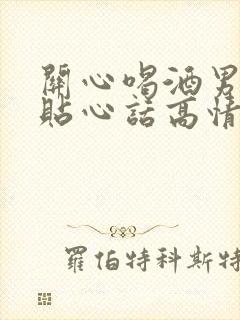 關心喝酒男
貼心話高情
羅伯特科斯特